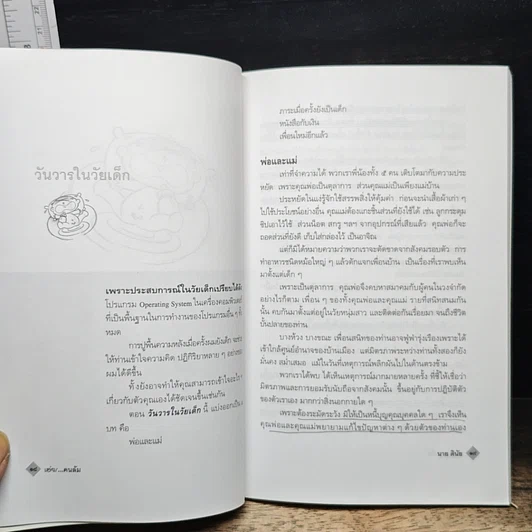 วันวารในวัยเด็ก
เพราะประสบการณ์ในวัยเด็กเปรียบได้
โปรแกรม Operating System ในเครื่องคอมพิวเตอร์
ที่เป็นพื้นฐานในการทำงานของโปรแกรมอื่น ๆ
หมด
การปูพื้นความหลังเมื่อครั้งผมยังเด็ก
ให้ท่านเข้าใจความคิด ปฏิกิริยาหลาย ๆ
ผมได้ดีขึ้น
ทั้งยังอาจทำให้คุณสามารถเข้าใจอะไร
เกี่ยวกับตัวคุณเองได้ชัดเจนขึ้นเช่นกัน
ตอน วันวารในวัยเด็ก นี้ แบ่งออกเป็น
บท คือ
พ่อและแม่
เซ่อ...คนล้ม
ภาระเมื่อครั้งยังเป็นเด็ก
หนังสือกับเงิน
เพื่อนใหม่อีกแล้ว
พ่อและแม่
เท่าที่จำความได้ พวกเราพี่น้องทั้ง ๕ คน เติบโตมากับความประ
หยัด เพราะคุณพ่อเป็นตุลาการ ส่วนคุณแม่เป็นเพียงแม่บ้าน
ประหยัดในแง่รู้จักใช้สรรพสิ่งให้คุ้มค่า ก่อนจะนำเสื้อผ้าเก่า ๆ
ไปใช้ประโยชน์อย่างอื่น คุณแม่ต้องเกาะชิ้นส่วนที่ยังใช้ได้ เช่น ลูกกระดุม
ซิปเอาไว้ใช้ ส่วนน็อต สกรู ฯลฯ จากอุปกรณ์ที่เสียแล้ว คุณพ่อก็จะ
ถอดส่วนที่ยังดี เก็บใส่กล่องไว้ เป็นอาจิณ
แต่ก็มิได้หมายความว่าพวกเราจะตัดขาดจากสังคมรอบตัว การ
ทำอาหารชนิดหม้อใหญ่ ๆ แล้วตักแจกเพื่อนบ้าน เป็นเรื่องที่เราพบเห็น
มาตั้งแต่เด็ก ๆ
เพราะเป็นตุลาการ คุณพ่อจึงคบหาสมาคมกับผู้คนในวงจำกัด
อย่างไรก็ตาม เพื่อน ๆ ของทั้งคุณพ่อและคุณแม่ รายที่สนิทสนมกันนั้น
คบกันมาตั้งแต่อยู่ในวัยหนุ่มสาว และติดต่อกันเรื่อยมา จนถึงชีวิตใน
บั้นปลายของท่าน
บางห้วง บางขณะ เพื่อนสนิทของท่านอาจฟู่ฟ่ารุ่งเรืองเพราะได้
เข้าใกล้ศูนย์อำนาจของบ้านเมือง แต่มิตรภาพระหว่างท่านทั้งสองก็ยัง
มั่นคง สม่ำเสมอ แม้ในวันที่เหตุการณ์พลิกผันไปในด้านตรงข้าม
พวกเราได้พบ ได้เห็นเหตุการณ์มากมายหลายครั้ง ที่ชี้ให้เชื่อว่า
มิตรภาพและการยอมรับนับถือจากสังคมนั้น ขึ้นอยู่กับการปฏิบัติตัว
ของตัวเราเอง มากกว่าสิ่งนอกกายใด ๆ
เพราะต้องระมัดระวัง มิให้เป็นหนี้บุญคุณบุคคลใด ๆ เราจึงเห็น
คุณพ่อและคุณแม่พยายามแก้ไขปัญหาต่าง ๆ ด้วยตัวของท่านเอง